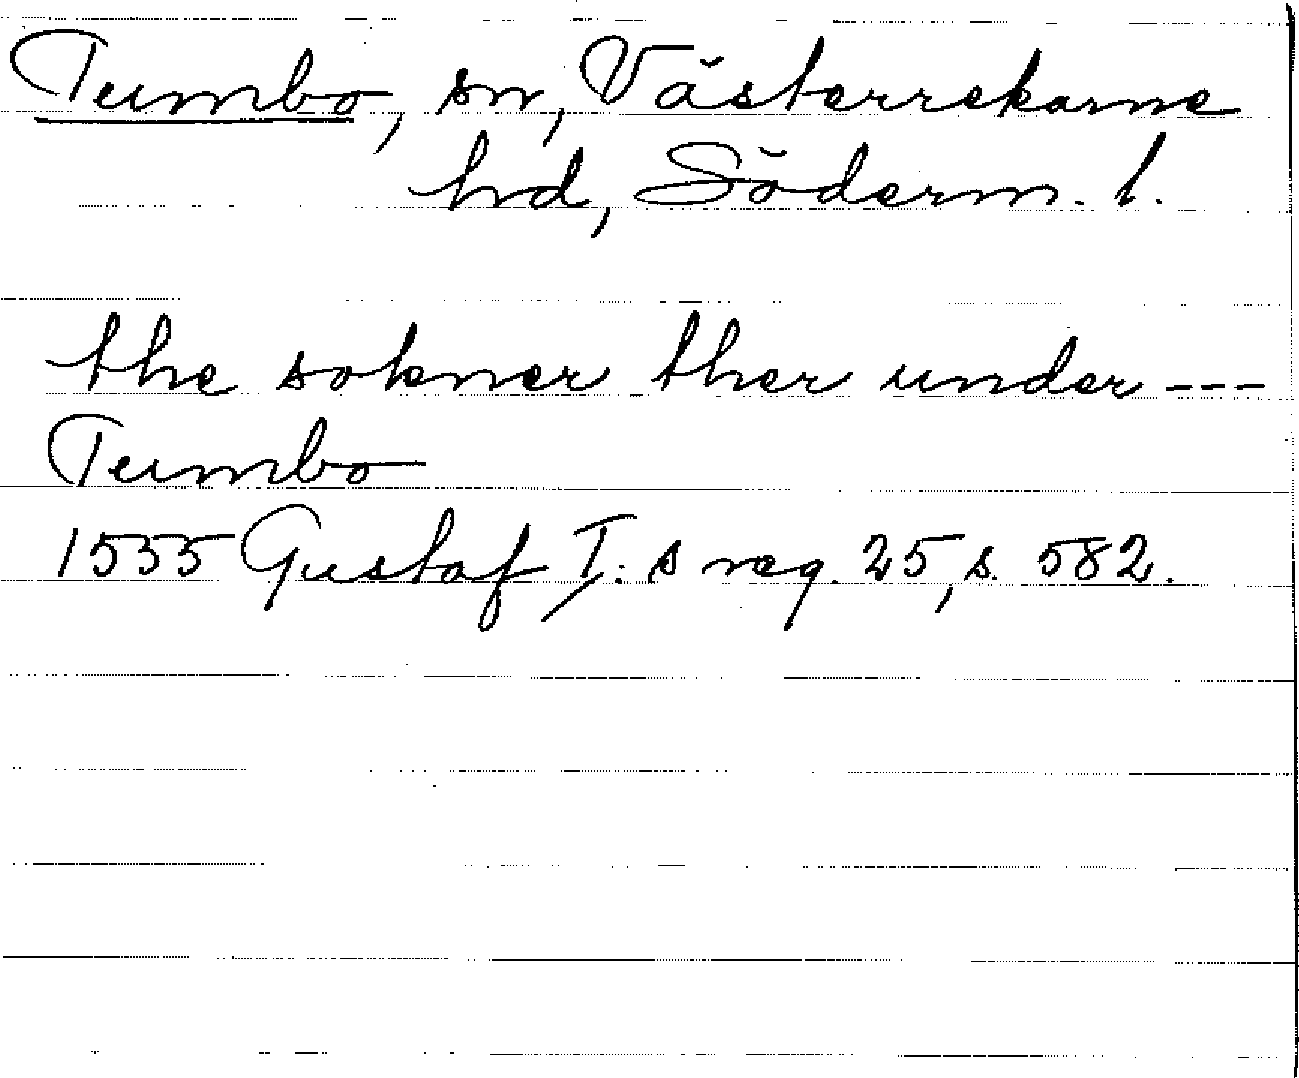 Tumbo, sn, Västerrekarne
hd, Söderm. l.
the sokner ther under ---
Tumbo
1555 Gustaf I: s reg. 25, s. 582.